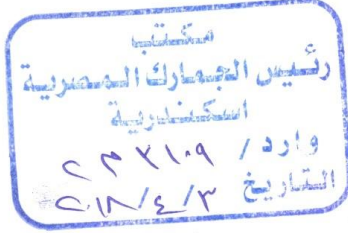 مكتب
رئيس الجمارك المصرية
اسكندرية
وارد /
التاريخ ٢٠١٨/٤/٣